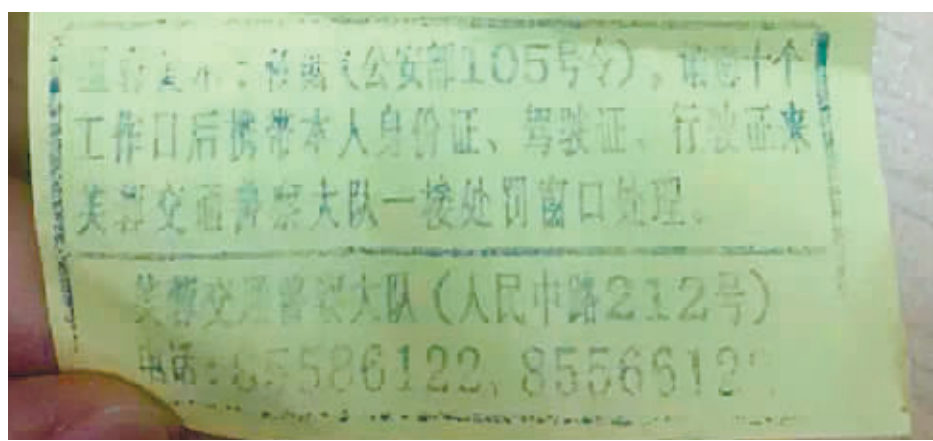 ：根据《公安部105号令》，请您十个
工作日后携带本人身份证、驾驶证、行驶证来
交通警察大队一楼处罚窗口处理。
交通警察大队（人民中路212号）
电话：85586122、8556612